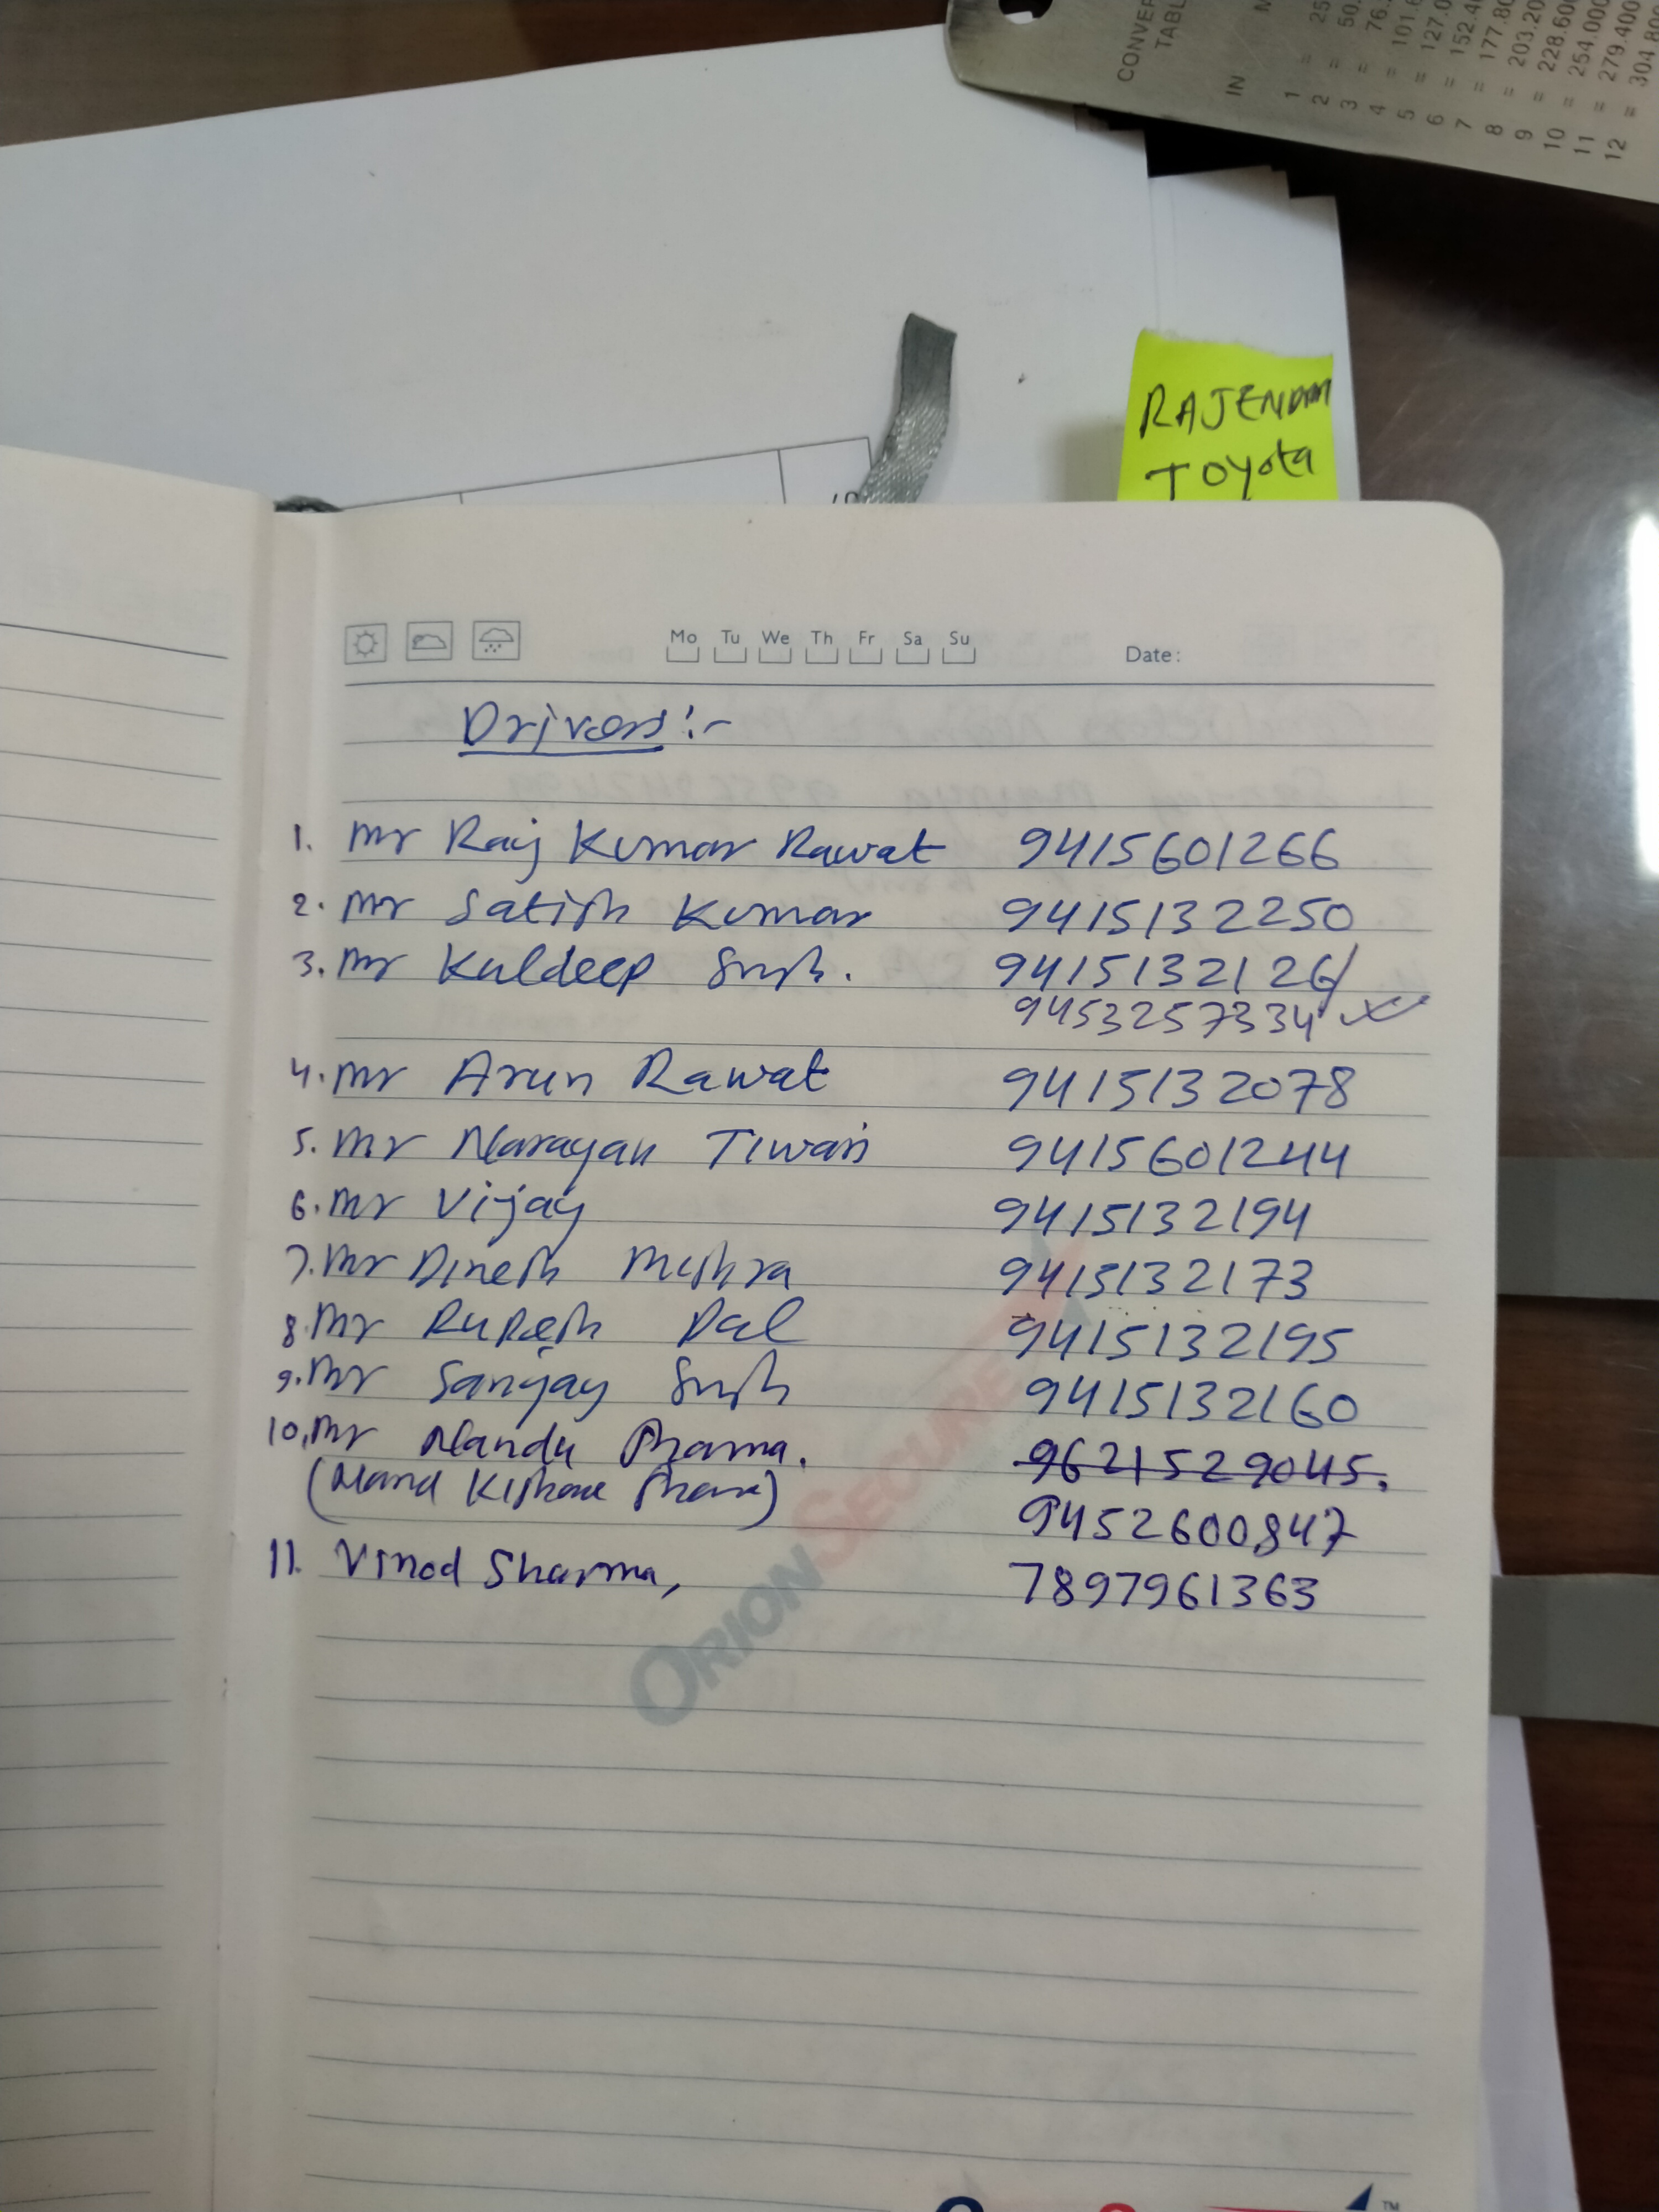 CONVER
TABL
IN M
1 = 25
2 = 50.
3 = 76.
4 = 101.6
5 = 127.0
6 = 152.4
7 = 177.80
8 = 203.20
9 = 228.600
10 = 254.000
11 = 279.400
12 = 304.800
RAJENDRA
Toyota
Mo Tu We Th Fr Sa Su
Date:
Drivers:-
1. Mr Raj Kumar Rawat 9415601266
2. Mr Satish Kumar 9415132250
3. Mr Kuldeep Singh. 9415132126/
9453257334
4. Mr Arun Rawat 9415132078
5. Mr Narayan Tiwari 9415601244
6. Mr Vijay 9415132194
7. Mr Dinesh Mishra 9415132173
8. Mr Rupesh Pal 9415132195
9. Mr Sanjay Singh 9415132160
10. Mr Nandu Sharma. 9621529045.
(Nand Kishore Sharma)
9452600847
11. Vinod Sharma, 7897961363
ORIONSECURE
TM